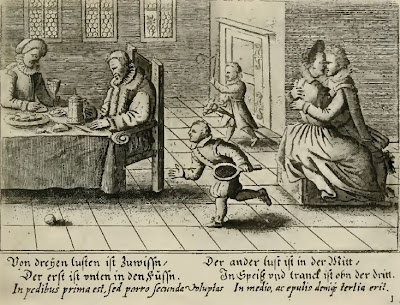 Von dreyen lusten ist Zuwissn/
Der erst ist vnten in den Füssn.
Der ander lust ist in der Mitt/
In Speiß vnd tranck ist obn der dritt.
In pedibus prima est, sed porro secunda Voluptas In medio, ac epulio deniq; tertia erit.
1